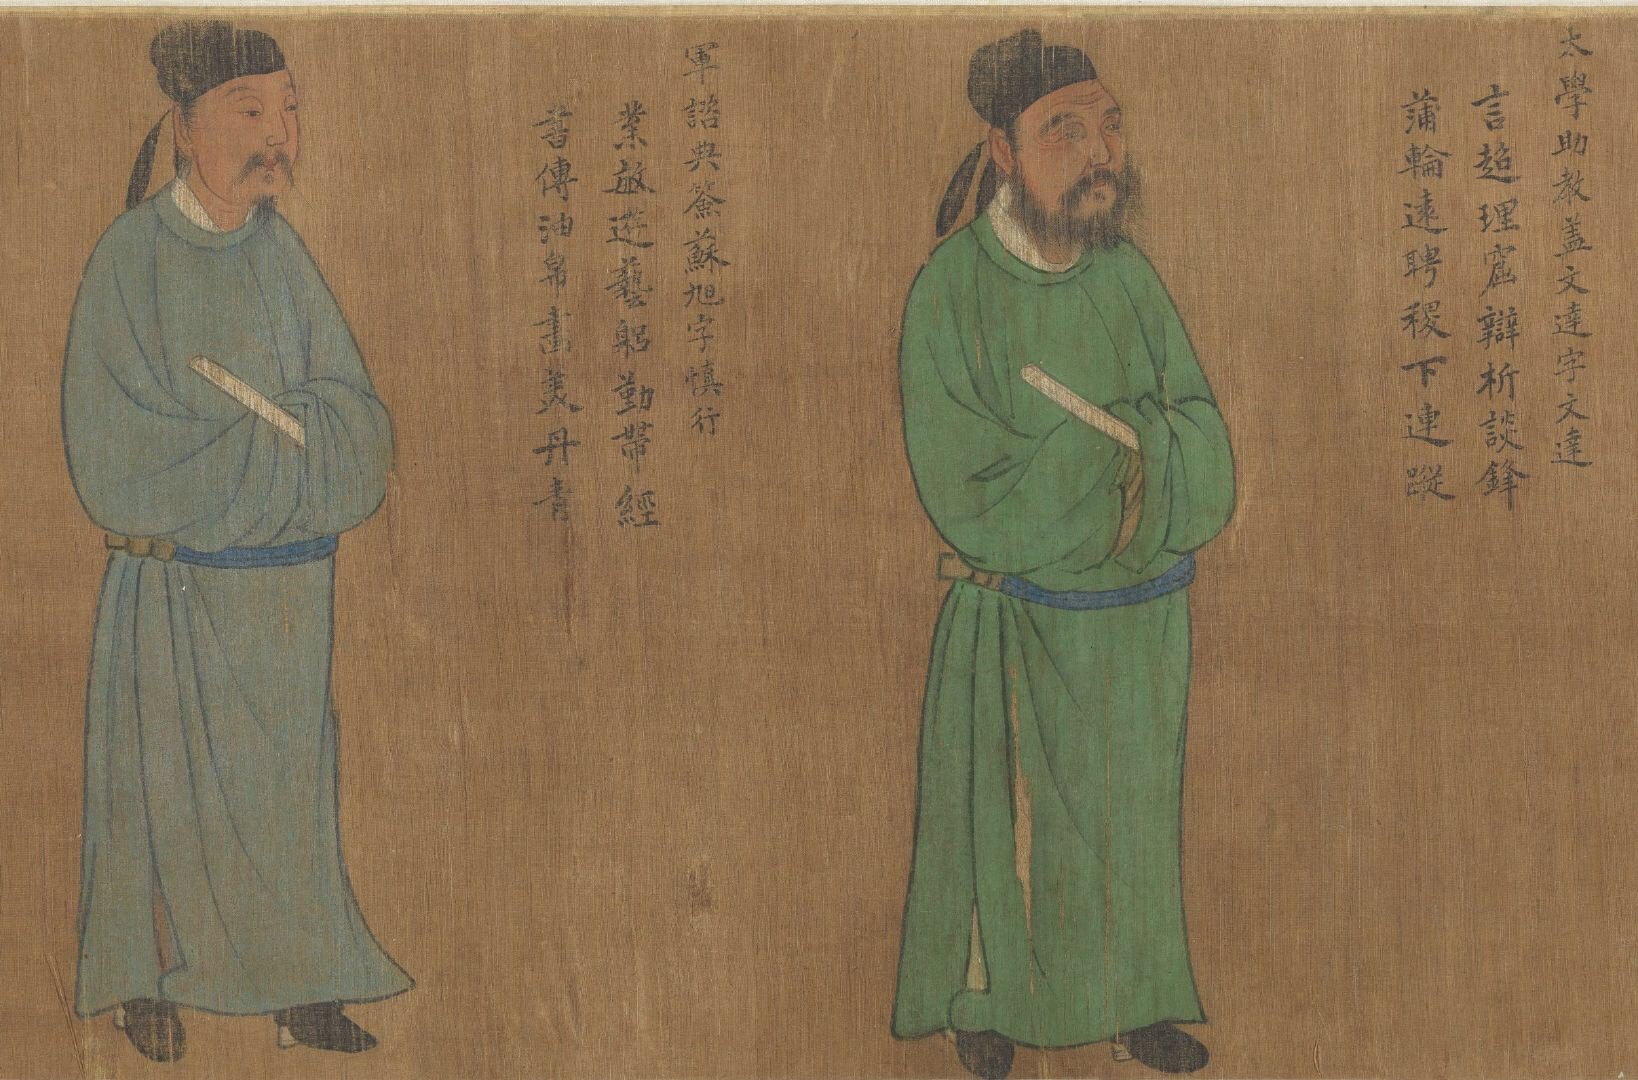 太學助教蓋文達字文達
言超理窟辯析談鋒
蒲輪遠聘稷下連蹤
軍諮典簽蘇旭字慎行
業敏遊藝躬勤帶經
書傳油帛畫美丹青